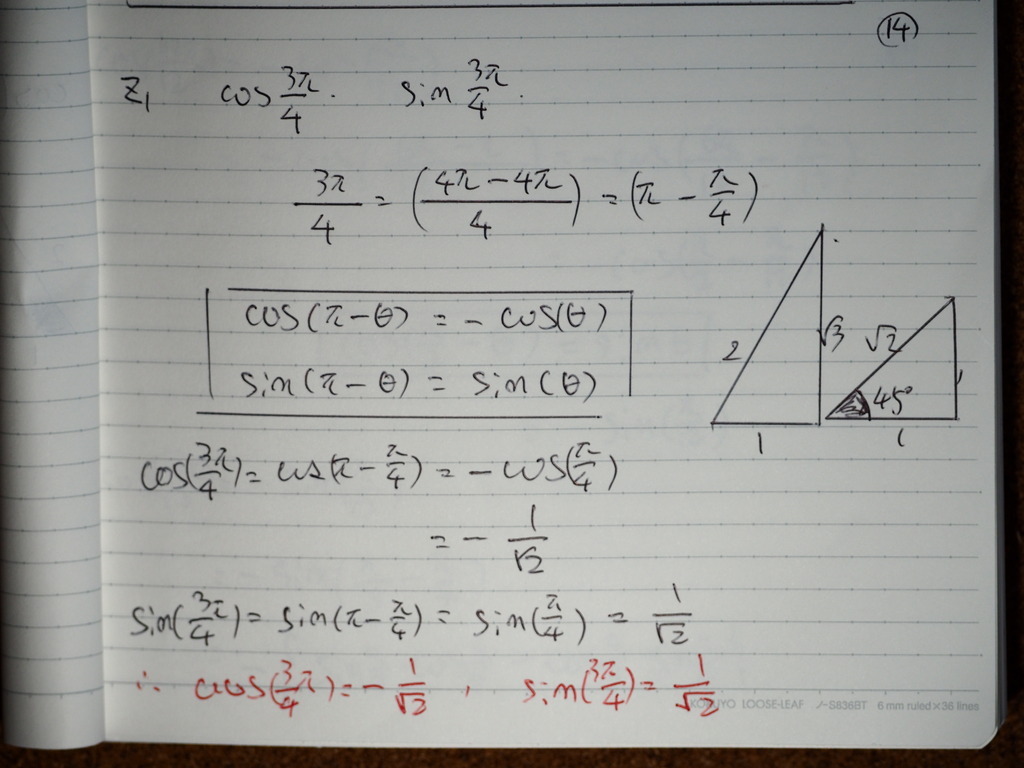 (14)
Z₁ cos 3π/4. sin 3π/4.
3π/4 = ((4π - 4π)/4) = (π - π/4)
cos(π-θ) = - cos(θ)
sin(π-θ) = sin(θ)
2 √3 1
√2 1 45° 1
cos(3π/4) = cos(π - π/4) = - cos(π/4)
= - 1/√2
sin(3π/4) = sin(π - π/4) = sin(π/4) = 1/√2
∴ cos(3/4 π) = - 1/√2 , sin(3π/4) = 1/√2
KOKUYO LOOSE-LEAF ノ-S836BT 6 mm ruled×36 lines